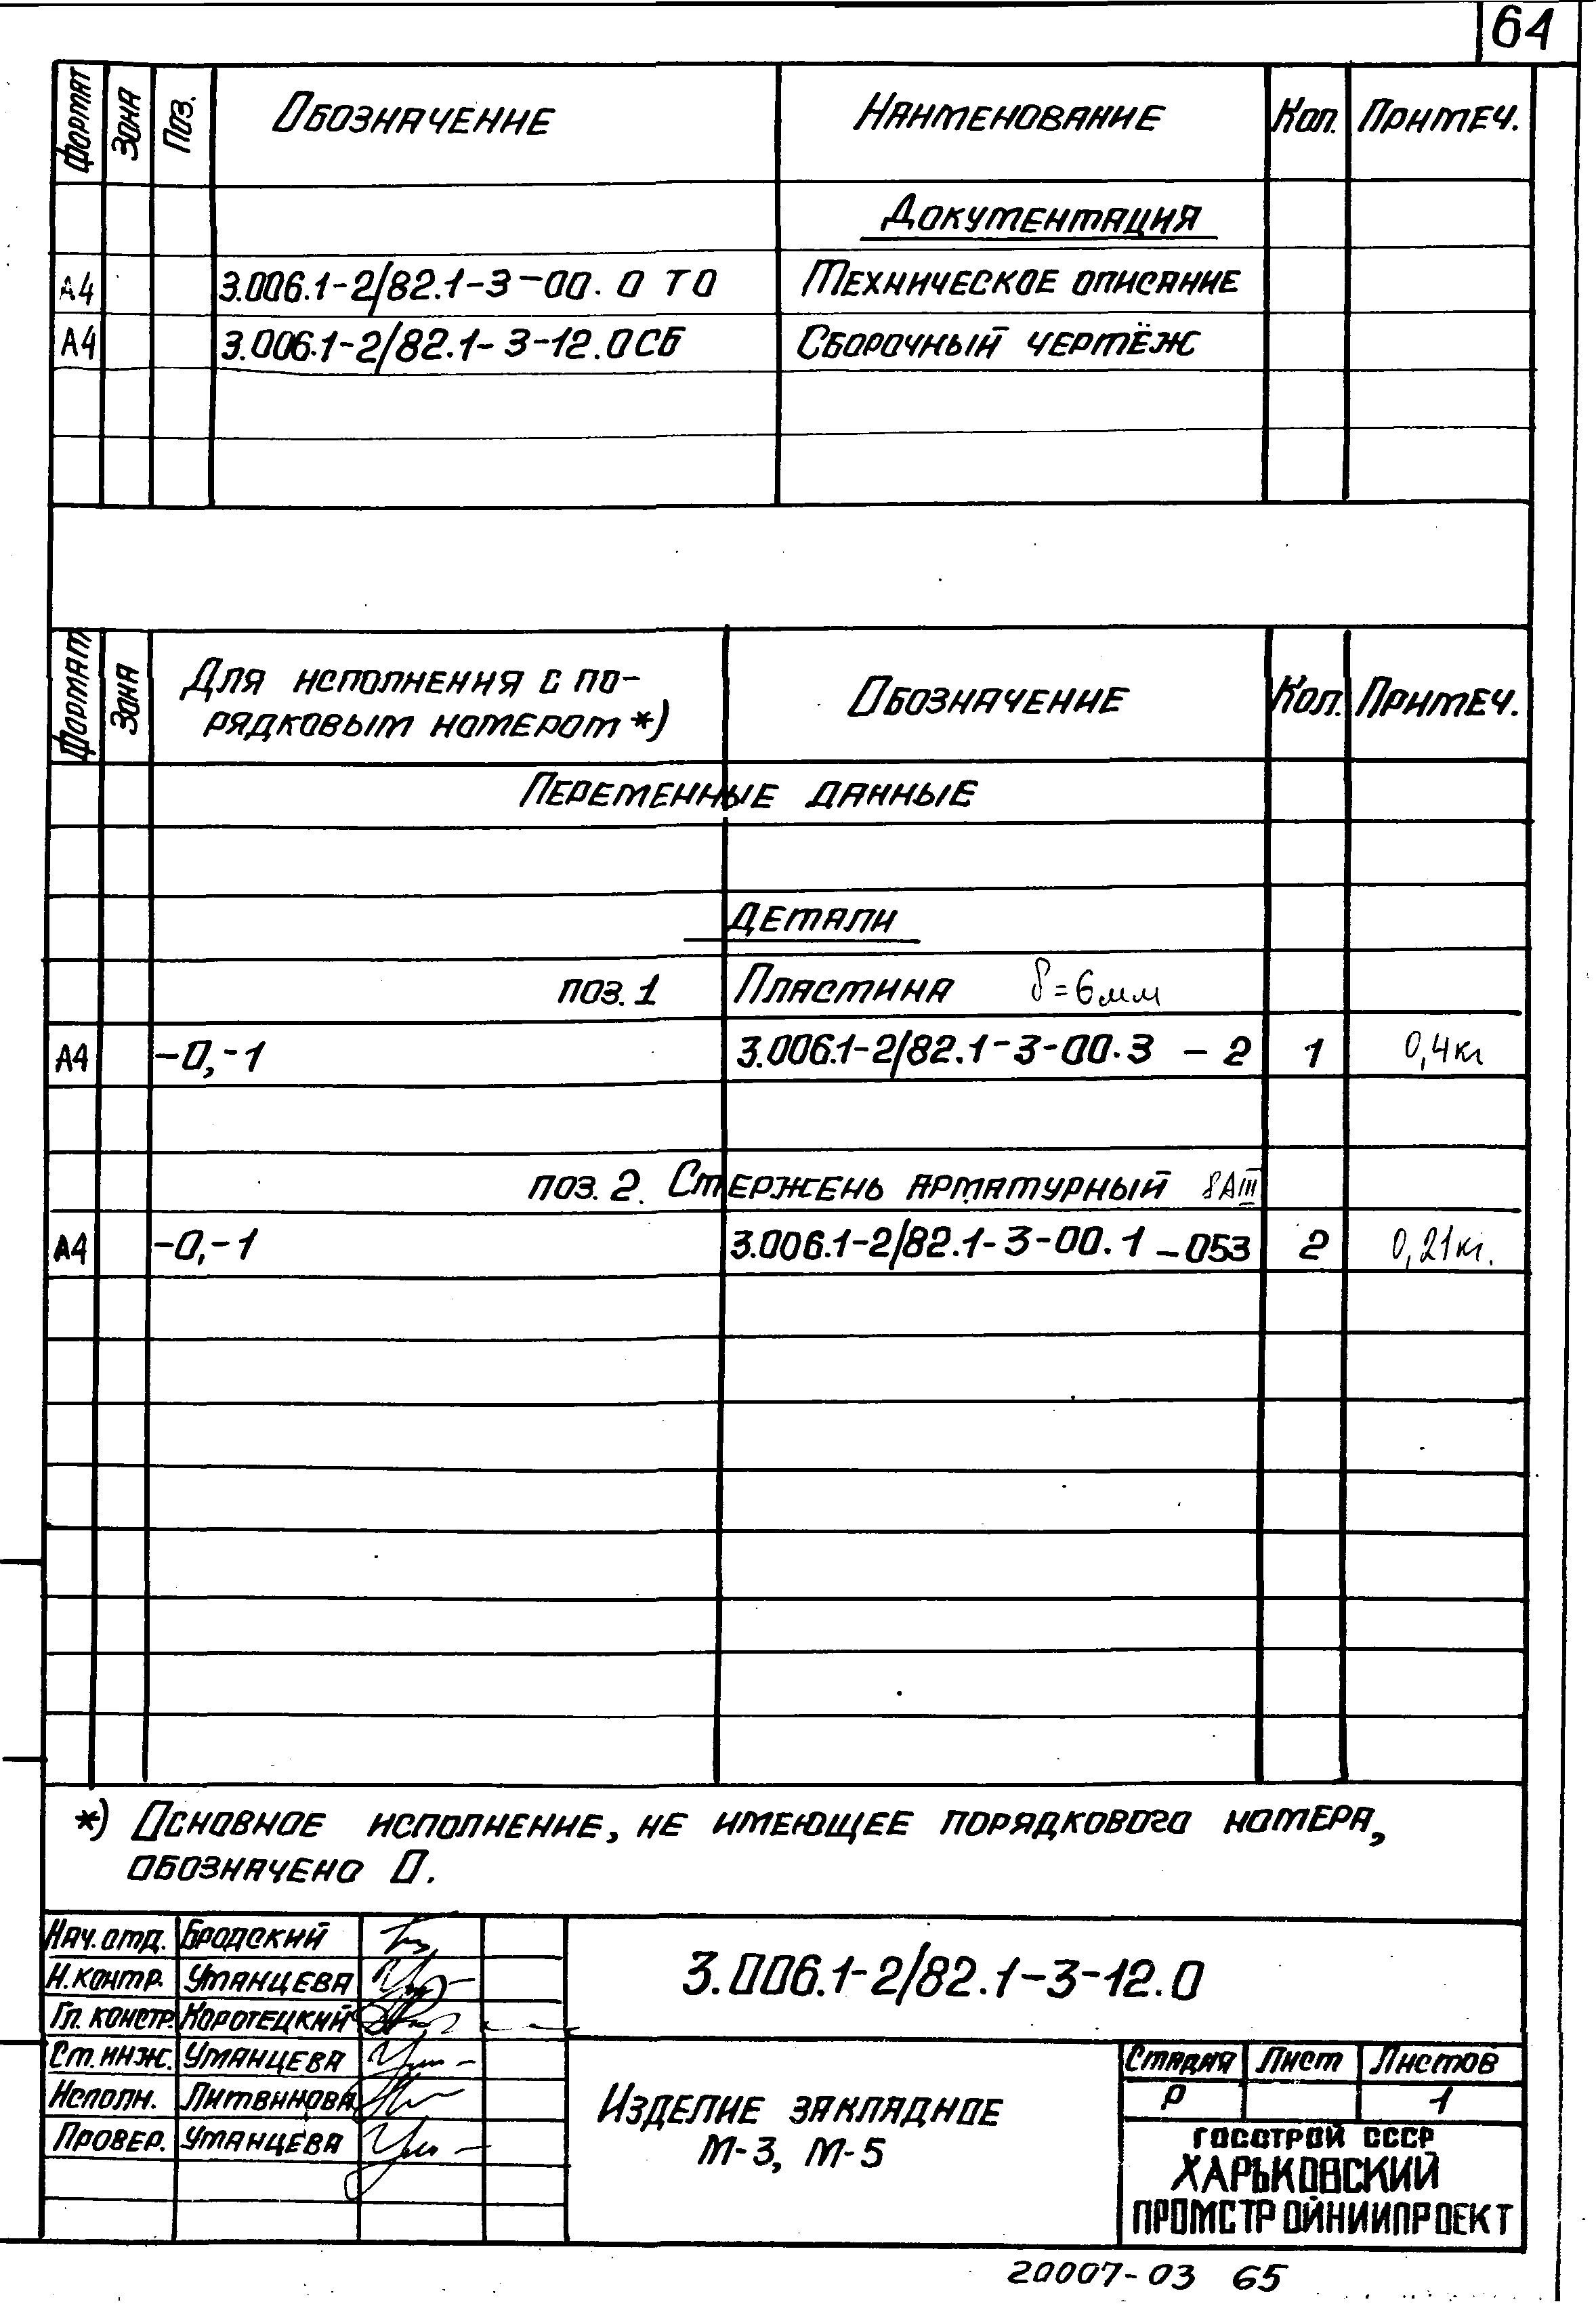 64
Формат Зона Поз. Обозначение Наименование Кол. Примеч.
Документация
А4 3.006.1-2/82.1-3-00.0 ТО Техническое описание
А4 3.006.1-2/82.1-3-12.0СБ Сборочный чертёж
Формат Зона Для исполнения с по-
рядковым номером *) Обозначение Кол. Примеч.
Переменные данные
Детали
поз. 1 Пластина δ=6мм
А4 -0,-1 3.006.1-2/82.1-3-00.3 - 2 1 0,4кг
поз. 2. Стержень арматурный 8АIII
А4 -0,-1 3.006.1-2/82.1-3-00.1 - 053 2 0,21кг.
*) Основное исполнение, не имеющее порядкового номера,
обозначено 0.
Нач. отд. Бродский
Н. контр. Уманцева
Гл. констр. Коротецкий
Ст. инж. Уманцева
Исполн. Литвинова
Провер. Уманцева
3.006.1-2/82.1-3-12.0
Изделие закладное
М-3, М-5
Стадия Лист Листов
Р 1
ГОССТРОЙ СССР
ХАРЬКОВСКИЙ
ПРОМСТРОЙНИИПРОЕКТ
20007-03 65